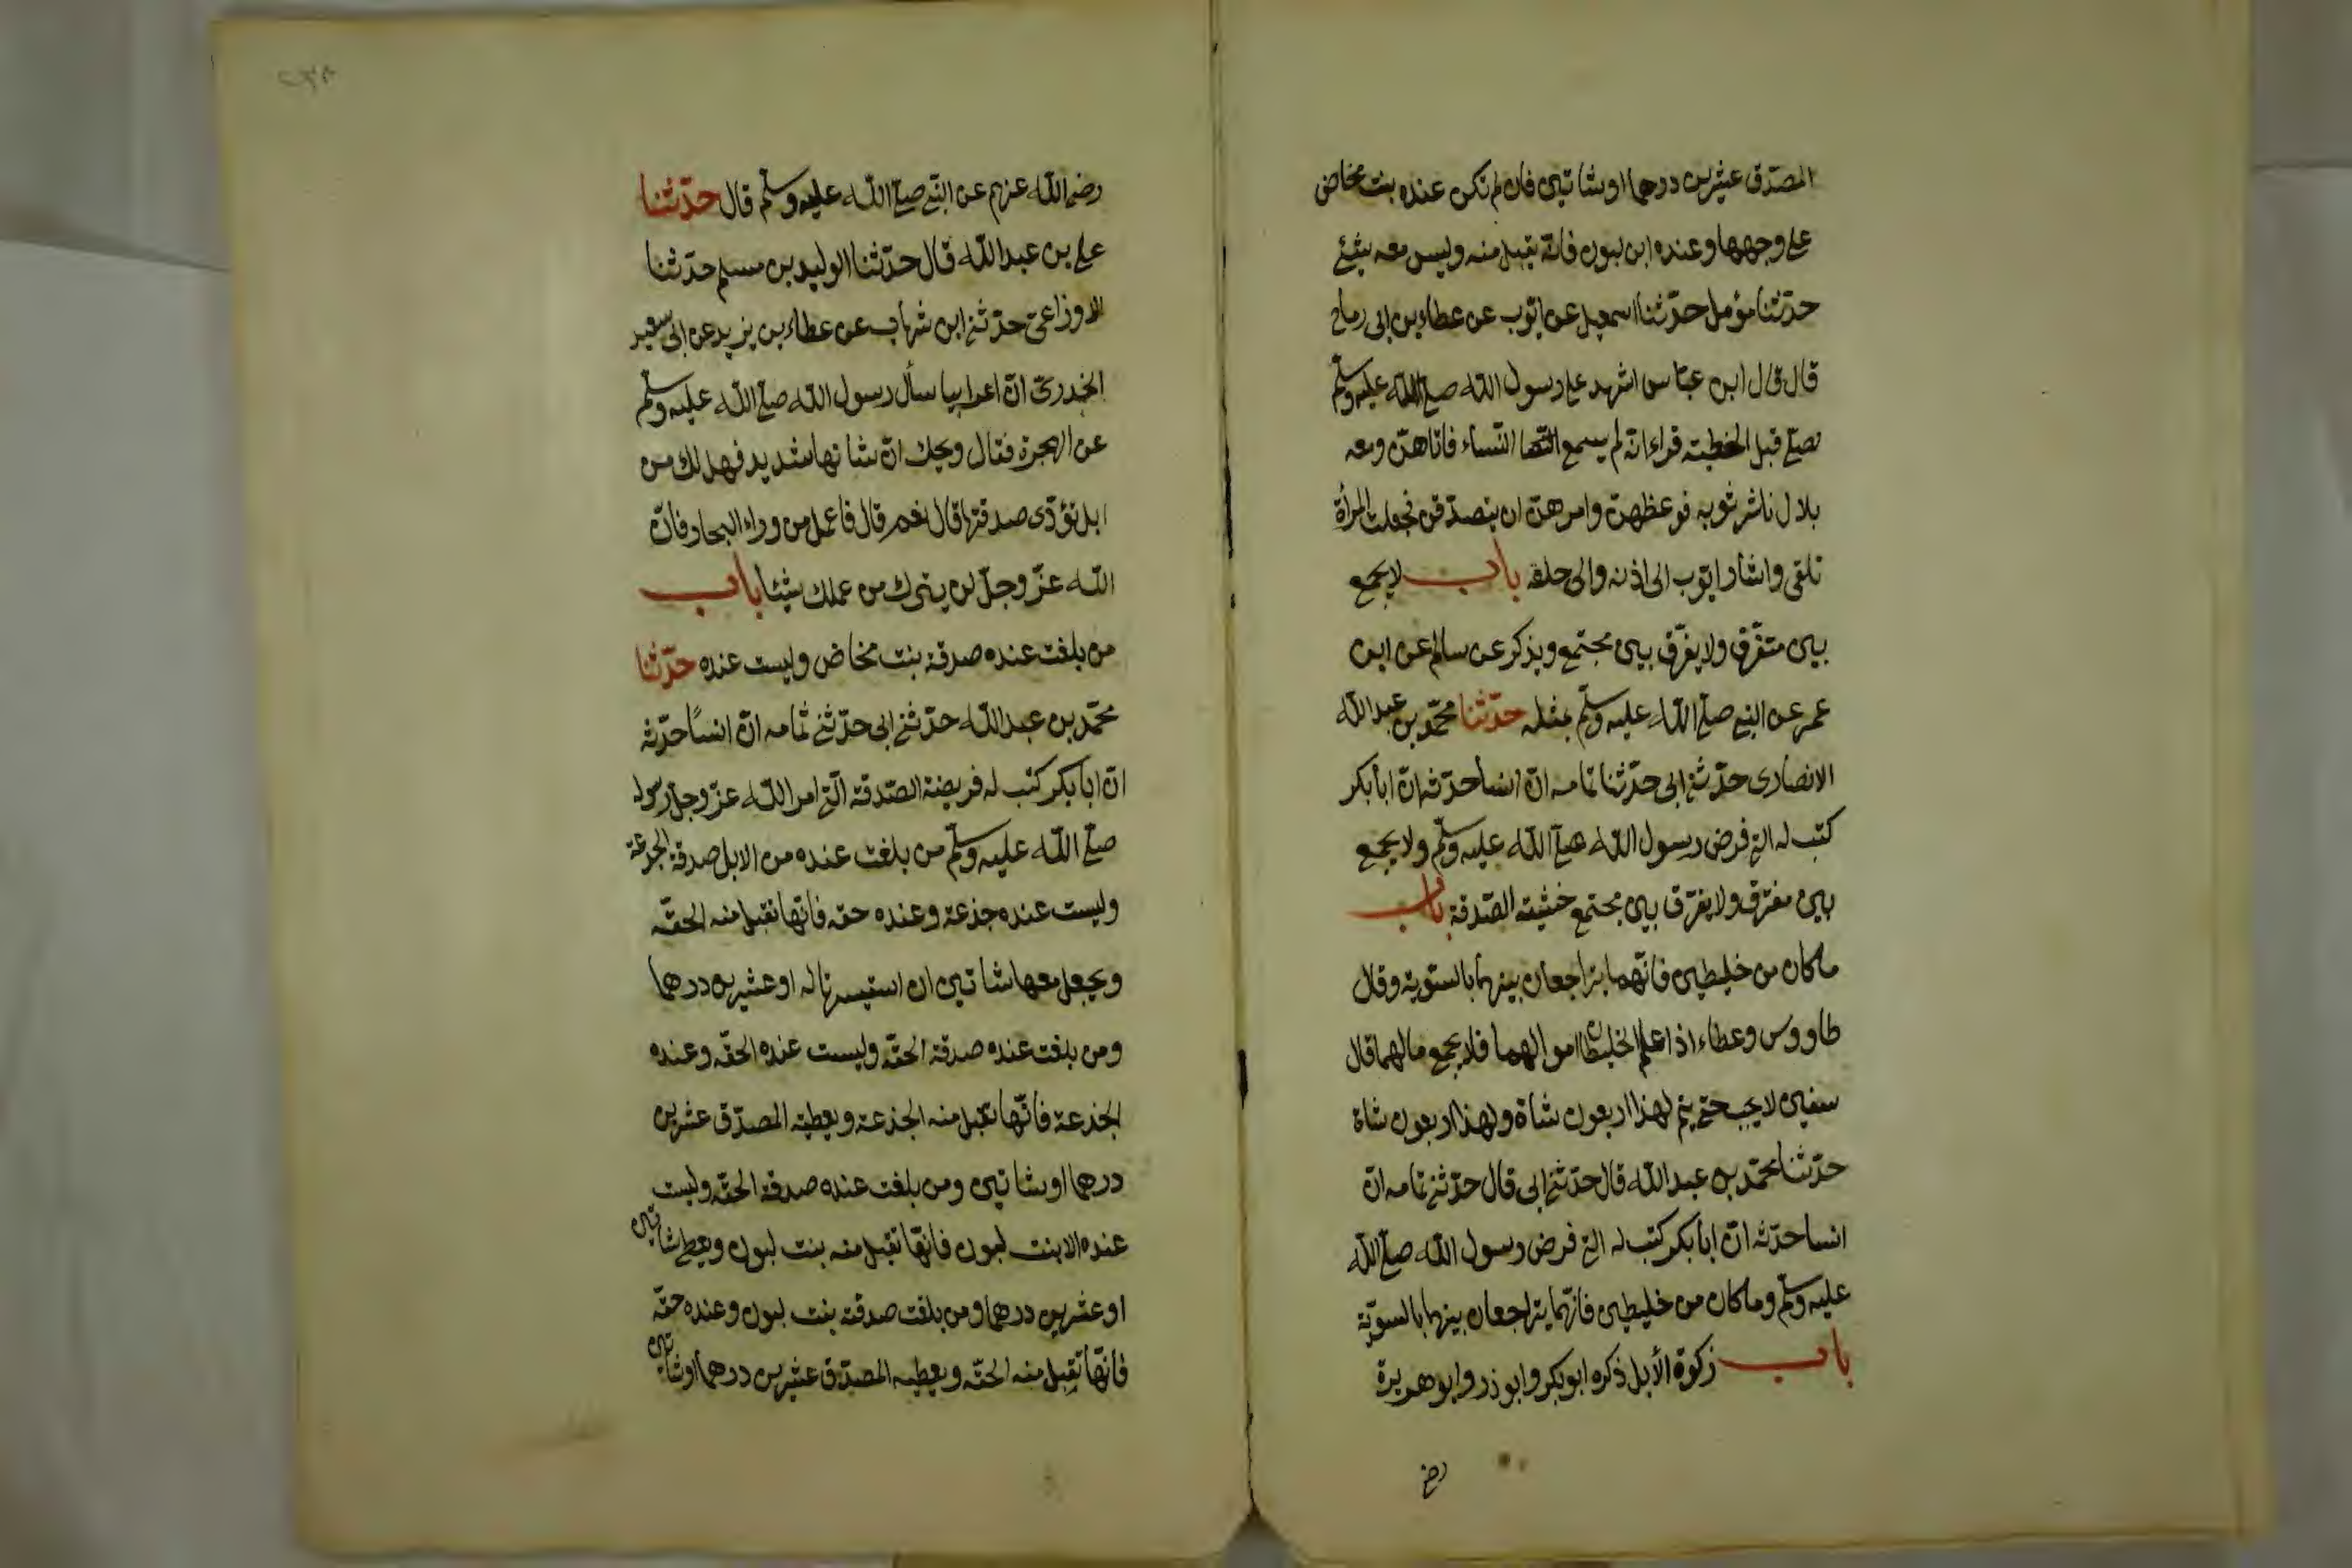 المصدّق عشرين درهما او شاتين فان لم تكن عنده بنت مخاض
على وجهها وعنده ابن لبون فانّه يقبل منه وليس معه شئ
حدّثنا مؤمل حدّثنا اسمعيل عن ايّوب عن عطاء بن ابى رباح
قال قال ابن عبّاس اشهد على رسول الله صلّى الله عليه وسلّم
لصلّى قبل الخطبة فراء انّه لم يسمع النّساء فاتاهنّ ومعه
بلال ناشر ثوبه فوعظهنّ وامرهنّ ان يتصدّقن فجعلت المرأة
تلقى واشار ايّوب الى اذنه والى حلقه باب لا يجمع
بين متفرّق ولا يفرّق بين مجتمع ويذكر عن سالم عن ابن
عمر عن النبى صلّى الله عليه وسلّم مثله حدّثنا محمّد بن عبد الله
الانصارى حدّثنى ابى حدّثنا ثمامه انّ انسا حدّثه انّ ابا بكر
كتب له التى فرض رسول الله صلّى الله عليه وسلّم ولا يجمع
بين مفترق ولا يفرّق بين مجتمع خشية الصّدقة باب
ما كان من خليطين فانّهما يتراجعان بينهما بالسّوية وقال
طاووس وعطاء اذا علم الخليطان اموالهما فلا يجمع مالهما قال
سفين لا يجب حتى يتم لهذا اربعون شاة ولهذا اربعون شاة
حدّثنا محمّد بن عبد الله قال حدّثنى ابى قال حدّثنى ثمامه انّ
انسا حدّثه انّ ابا بكر كتب له التى فرض رسول الله صلّى الله
عليه وسلّم وما كان من خليطين فانّهما يتراجعان بينهما بالسويّة
باب زكوة الأبل ذكره ابو بكر وابو ذر وابو هريرة
رضى
رضى الله عنهم عن النّبى صلّى الله عليه وسلّم قال حدّثنا
على بن عبد الله قال حدّثنا الوليد بن مسلم حدّثنا
الاوزاعىّ حدّثنى ابن شهاب عن عطاء بن يزيد عن ابى سعيد
الخدرىّ انّ اعرابيا سأل رسول الله صلّى الله عليه وسلّم
عن الهجرة فقال ويحك انّ شانها شديد فهل لك من
ابل تؤدّى صدقتها قال نعم قال فاعمل من وراء البحار فانّ
الله عزّ وجلّ لن يترك من عملك شيئا باب
من بلغت عنده صدقة بنت مخاض وليست عنده حدّثنا
محمّد بن عبد الله حدّثنى ابى حدّثنى ثمامه انّ انسًا حدّثه
انّ ابا بكر كتب له فريضة الصّدقة الّتى امر الله عزّ وجلّ رسوله
صلّى الله عليه وسلّم من بلغت عنده من الابل صدقة الجذعة
وليست عنده جذعة وعنده حقه فانّها تقبل منه الحقّه
ويجعل معها شاتين ان استيسرتا له او عشرين درهما
ومن بلغت عنده صدقة الحقّه وليست عنده الحقّه وعنده
الجذعة فانّها تقبل منه الجذعة ويعطيه المصدّق عشرين
درهما او شاتين ومن بلغت عنده صدقة الحقّه وليست
عنده الا بنت لبون فانّها تقبل منه بنت لبون ويعطى شاتين
او عشرين درهما ومن بلغت صدقته بنت لبون وعنده حقّه
فانّها تقبل منه الحقّه ويعطيه المصدّق عشرين درهما او شاتين